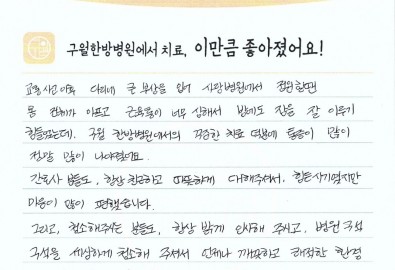 구월한방병원에서 치료, 이만큼 좋아졌어요!
교통 사고 이후 다리에 큰 부상을 입어 사랑병원에서 전원했던
몸 전체가 아프고 근육통이 너무 심해서 밤에도 잠을 잘 이루기
힘들었는데. 구월 한방병원에서의 꾸준한 치료 덕분에 통증이 많이
정말 많이 나아졌어요.
간호사 분들도, 항상 친근하고 따뜻하게 대해주셔서, 힘든시기였지만
마음이 많이 편했습니다.
그리고, 청소해주시는 분들도, 항상 밝게 인사해 주시고, 병원 구석
구석을 세심하게 청소해 주셔서 언제나 깨끗하고 쾌적한 환경